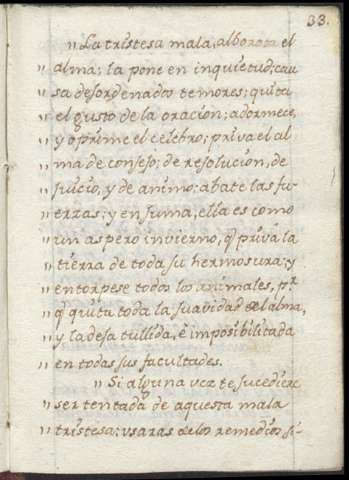 33.
" La tristesa mala, alborota el
" alma; la pone en inquietud; cau
" sa desordenados temores; quita
" el gusto de la oracion; adormece,
" y oprime el celebro; priva el al
" ma de consejo; de resolucion, de
" juicio, y de animo: abate las fu-
" erzas; y en suma, ella es como
" un aspero invierno, q̃ priva la
" tierra de toda su hermosura; y
" entorpese todos los animales, p.r
" q̃ quita toda la suavidad del alma,
" y la deja tullida, è imposibilitada
" en todas sus facultades.
" Si alguna vez te sucediere
" ser tentada de aquesta mala
" tristesa: usaras de los remedios si-